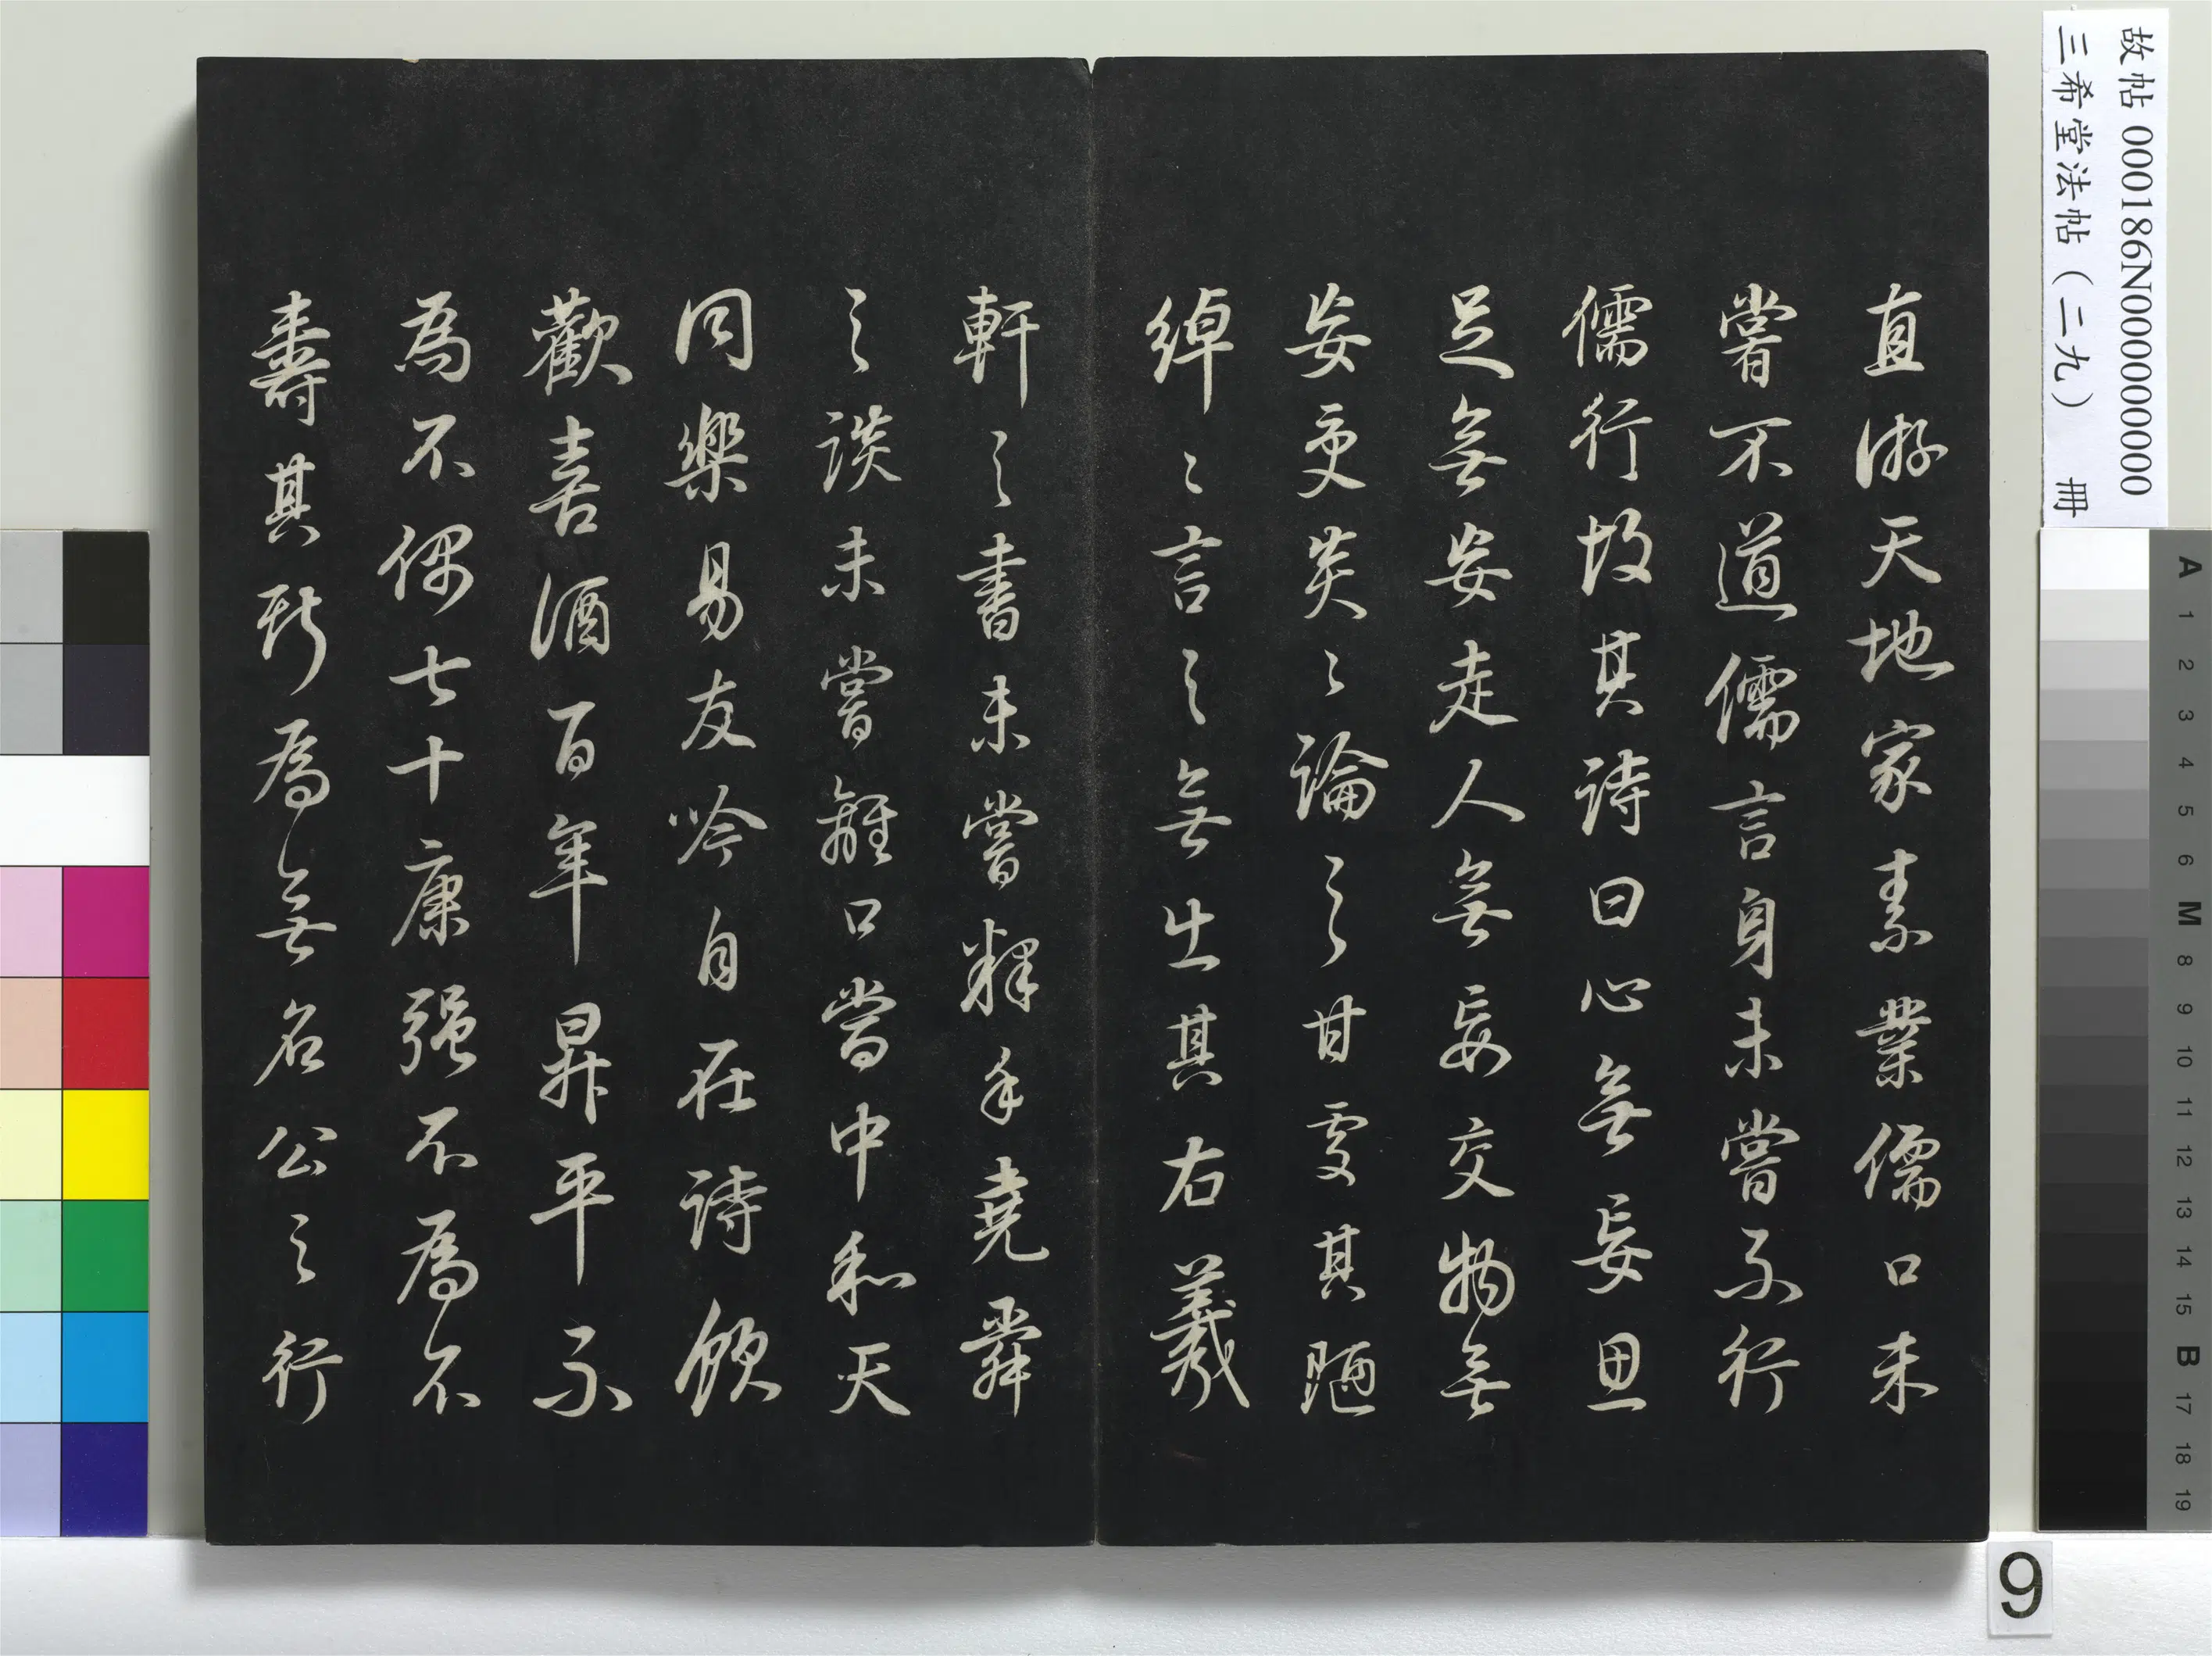 故帖 000186N000000000
三希堂法帖（二九） 冊
直游天地家素業儒口未
嘗不道儒言身未嘗不行
儒行故其詩曰心無妄思
足無妄走人無妄交物無
妄受炎〻論之甘處其陋
綽〻言之無出其右羲
軒之書未嘗釋手堯舜
之談未嘗離口當中和天
同樂易友吟自在詩飲
歡喜酒百年昇平不
為不偶七十康强不為不
壽其斯為無名公之行
A 1 2 3 4 5 6 M 8 9 10 11 12 13 14 15 B 17 18 19
9